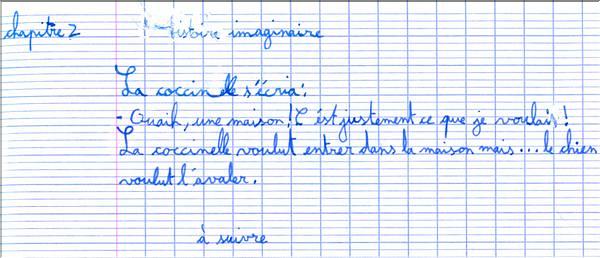 chapitre 2 Histoire imaginaire
La coccinelle s'écria:
- Ouaih, une maison! C'est justement ce que je voulais!
La coccinelle voulut entrer dans la maison mais... le chien
voulut l'avaler.
à suivre